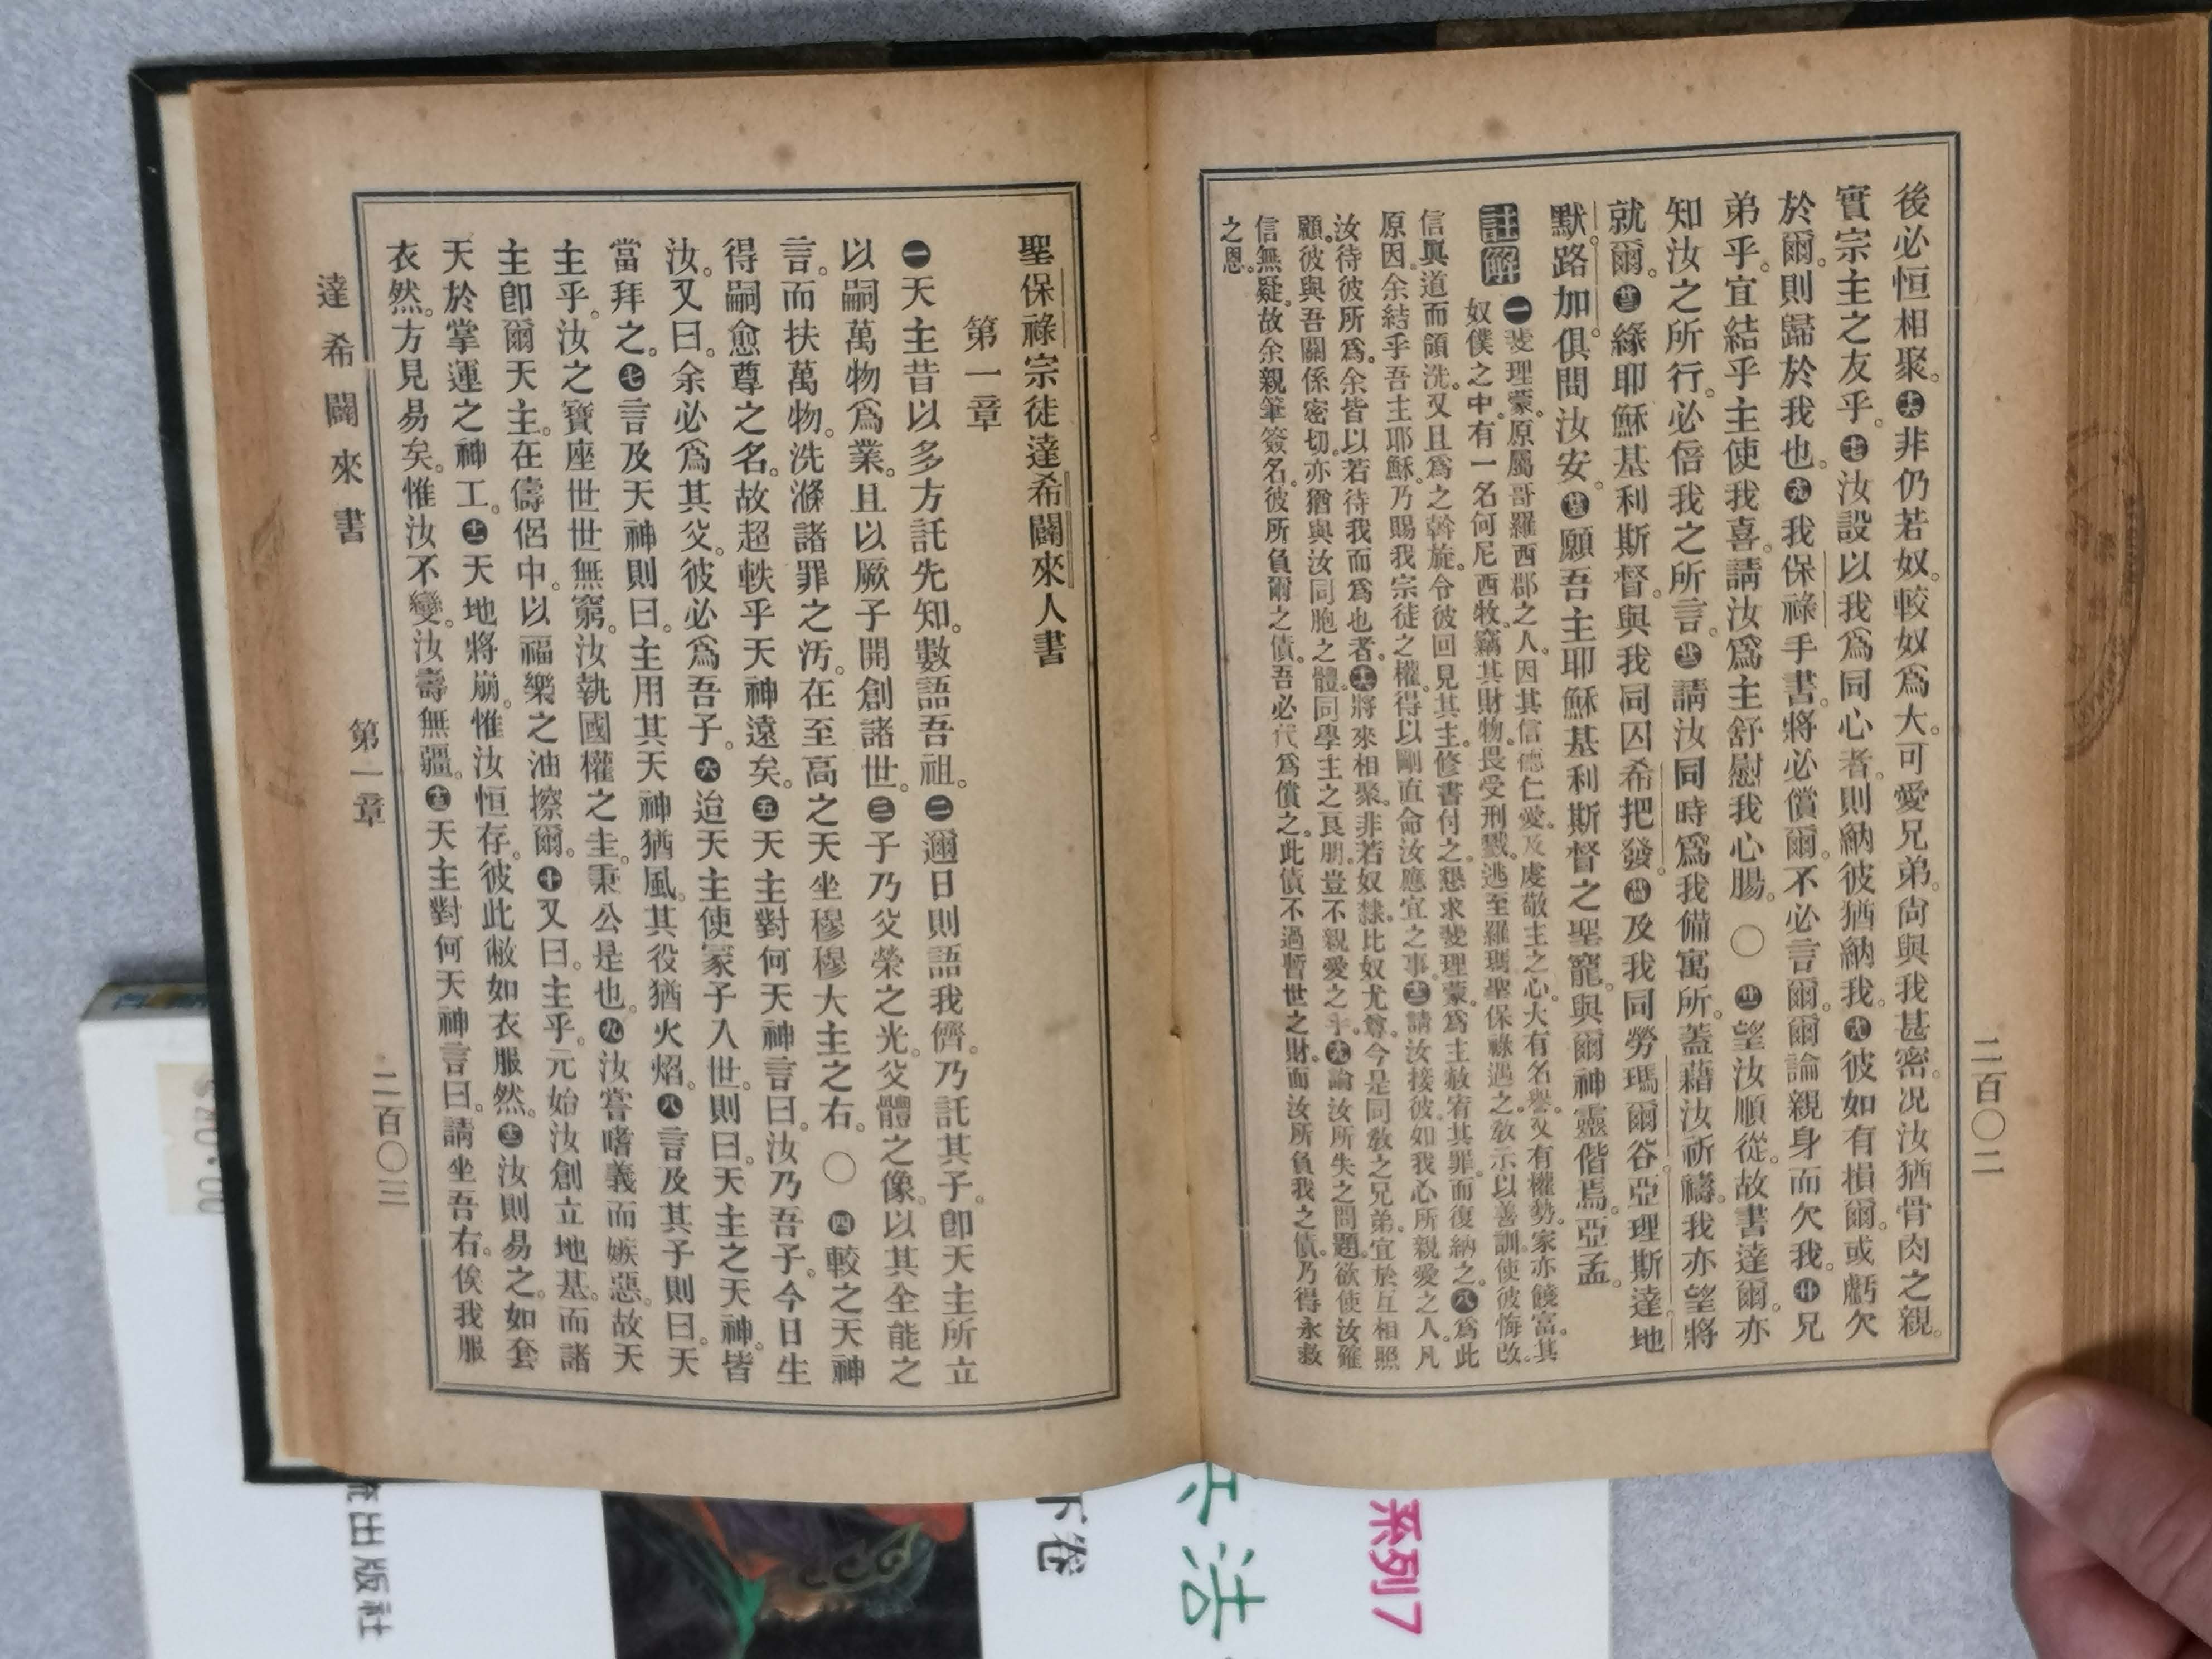 二百〇二
後必恒相聚。㊅非仍若奴。較奴爲大。可愛兄弟。尙與我甚密。況汝猶骨肉之親。
實宗主之友乎。㊆汝設以我爲同心者。則納彼猶納我。㊇彼如有損爾。或虧欠
於爾。則歸於我也。㊈我保祿手書。將必償爾。不必言爾。爾論親身而欠我。㊉兄
弟乎。宜結乎主使我喜。請汝爲主舒慰我心腸。〇望汝順從。故書達爾。亦
知汝之所行。必倍我之所言。請汝同時爲我備寓所。蓋藉汝祈禱。我亦望將
就爾。緣耶穌基利斯督。與我同囚希把發。及我同勞瑪爾谷。亞理斯達地
默。路加。俱問汝安。願吾主耶穌基利斯督之聖寵。與爾神靈偕焉。亞孟。
註解 一斐理蒙。原屬哥羅西郡之人。因其信德仁愛。及虔敬主之心。大有名譽。又有權勢。家亦饒富。其
奴僕之中。有一名何尼西牧。竊其財物。畏受刑戮。逃至羅瑪。聖保祿遇之。敎示以善訓。使彼悔改。
信眞道而領洗。又且爲之斡旋。令彼回見其主。修書付之。懇求斐理蒙。爲主赦宥其罪。而復納之。八爲此
原因。余結乎吾主耶穌。乃賜我宗徒之權。得以剛直命汝應宜之事。請汝接彼。如我心所親愛之人。凡
汝待彼所爲。余皆以若待我而爲也者。將來相聚。非若奴隸。比奴尤尊。今是同敎之兄弟。宜於互相照
顧。彼與吾關係密切。亦猶與汝同胞之體。同學主之良朋。豈不親愛之乎。論汝所失之問題。欲使汝確
信無疑。故余親筆簽名。彼所負爾之債。吾必代爲償之。此債不過暫世之財。而汝所負我之債。乃得永救
之恩。
聖保祿宗徒達希闢來人書
第一章
一天主昔以多方託先知。數語吾祖。二邇日則語我儕。乃託其子。卽天主所立
以嗣萬物爲業。且以厥子開創諸世。三子乃父榮之光。父體之像。以其全能之
言。而扶萬物。洗滌諸罪之汚。在至高之天坐穆穆大主之右。〇四較之天神
得嗣愈尊之名。故超軼乎天神遠矣。五天主對何天神言曰。汝乃吾子。今日生
汝。又曰。余必爲其父。彼必爲吾子。六迨天主使冢子入世。則曰。天主之天神。皆
當拜之。七言及天神則曰。主用其天神猶風。其役猶火焰。八言及其子則曰。天
主乎。汝之寶座世世無窮。汝執國權之圭。秉公是也。九汝嘗嗜義而嫉惡。故天
主卽爾天主。在儔侶中。以福樂之油擦爾。十又曰。主乎。元始汝創立地基。而諸
天於掌運之神工。十一天地將崩。惟汝恒存。彼此敝如衣服然。十二汝則易之。如套
衣然。方見易矣。惟汝不變。汝壽無疆。十三天主對何天神言曰。請坐吾右。俟我服
達希闢來書 第一章 二百〇三
系列7
兵法
下卷
出版社